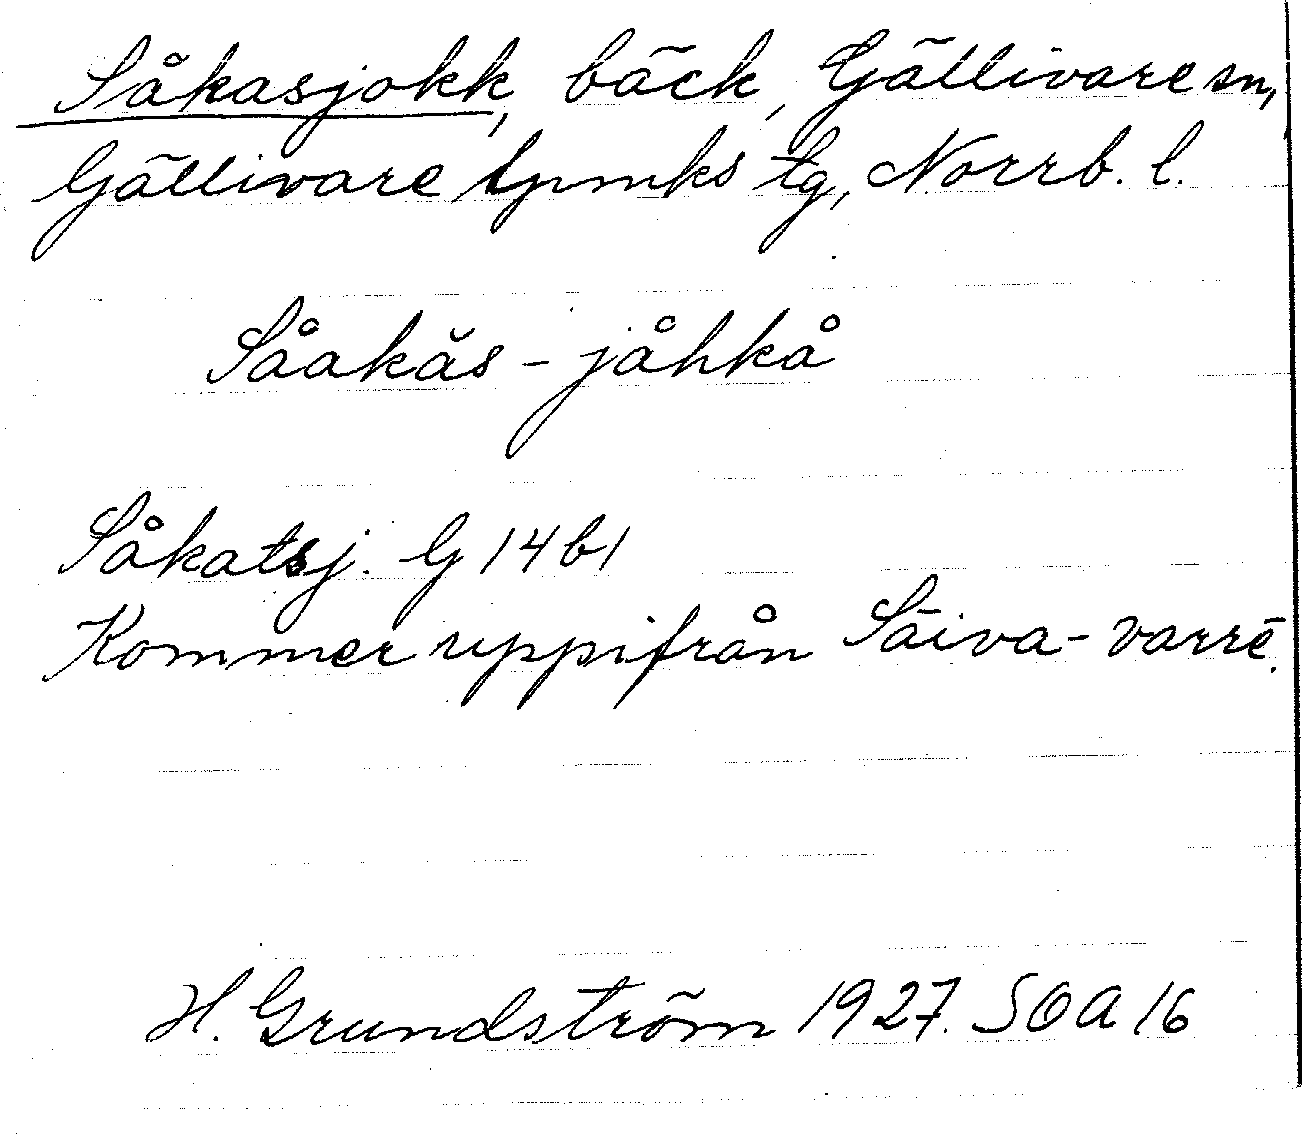 Såkasjokk, bäck, Gällivare sn,
Gällivare lpmks tg, Norrb. l.
Såakăs-jåhkå
Såkatsj. G 14 b 1
Kommer uppifrån Säiva-varrē.
H. Grundström 1927. SOA 16